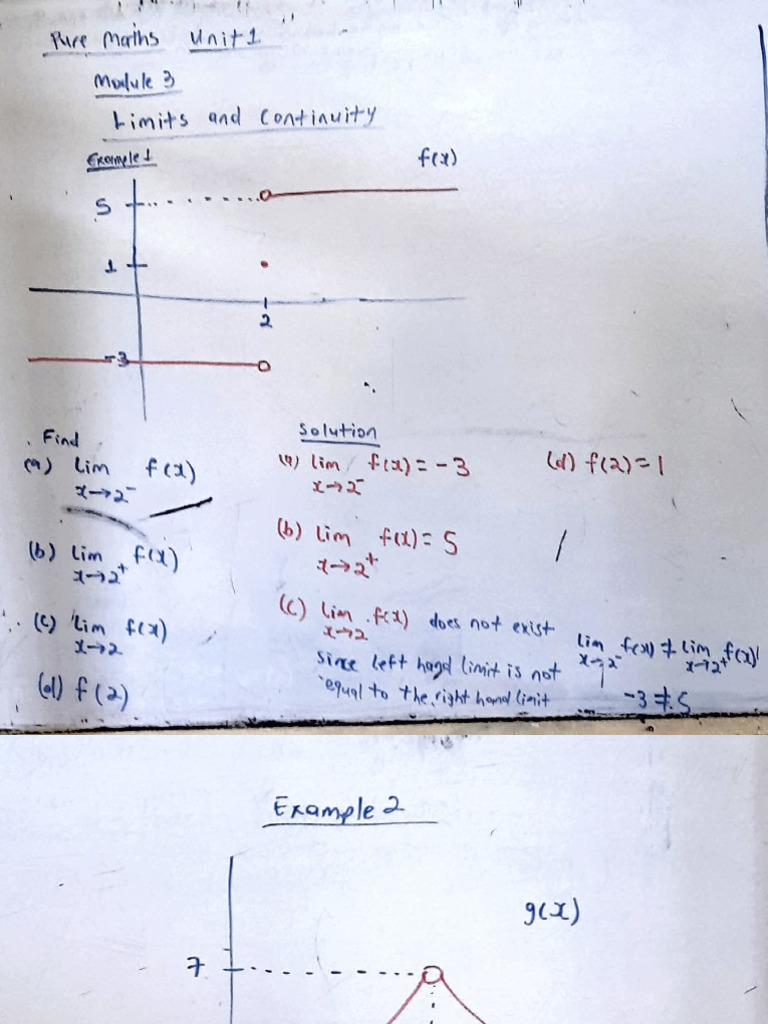 Pure Maths Unit 1
Module 3
Limits and Continuity
Example 1
f(x)
5
1
2
-3
Find
(a) lim f(x)
x→2⁻
(b) lim f(x)
x→2⁺
(c) lim f(x)
x→2
(d) f(2)
Solution
(a) lim f(x) = -3
x→2⁻
(b) lim f(x) = 5
x→2⁺
(c) lim f(x) does not exist
x→2
since left hand limit is not
equal to the right hand limit
(d) f(2) = 1
lim f(x) ≠ lim f(x)
x→2⁻ x→2⁺
-3 ≠ 5
Example 2
g(x)
7